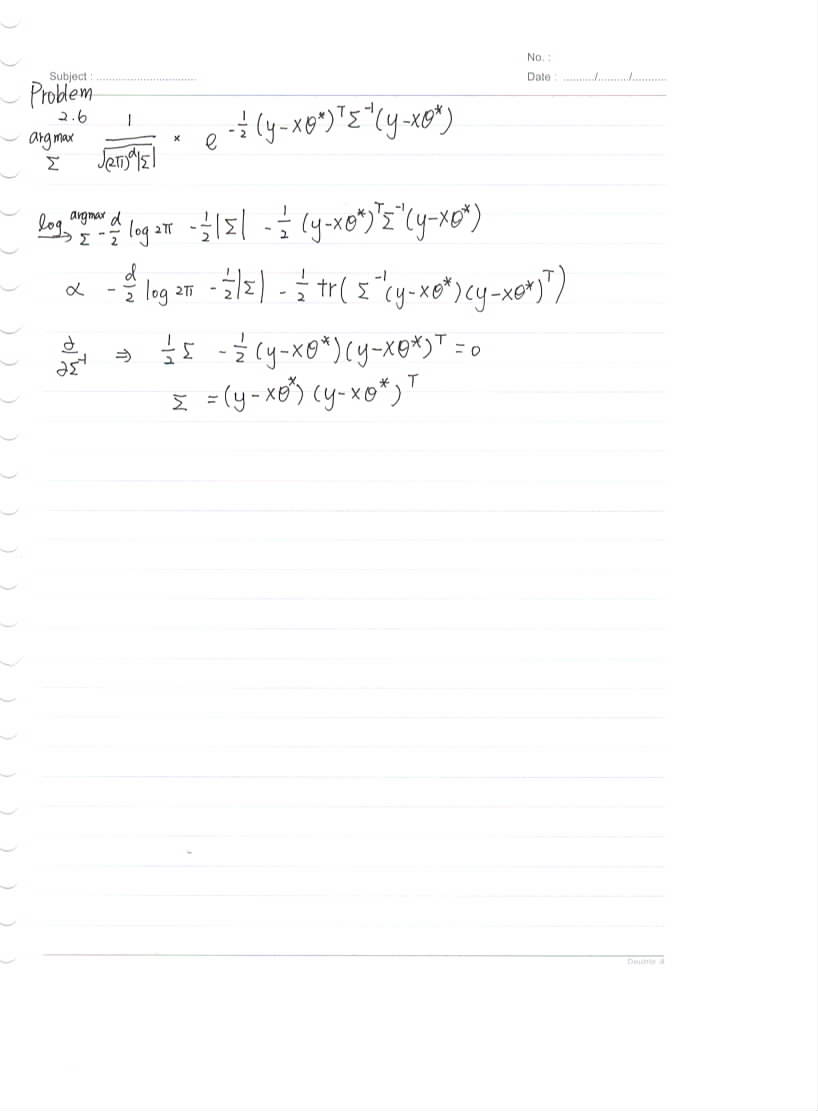 No. :
Subject : ................................
Date : ........../........../...........
Problem
2.6
argmax_Σ 1/√((2π)^d|Σ|) × e^{-1/2 (y-xθ*)^T Σ^{-1} (y-xθ*)}
log→ argmax_Σ -d/2 log 2π - 1/2|Σ| - 1/2 (y-xθ*)^T Σ^{-1} (y-xθ*)
∝ -d/2 log 2π - 1/2|Σ| - 1/2 tr( Σ^{-1} (y-xθ*)(y-xθ*)^T )
∂/∂Σ^{-1} ⇒ 1/2 Σ - 1/2 (y-xθ*)(y-xθ*)^T = 0
Σ = (y-xθ*)(y-xθ*)^T
Double A